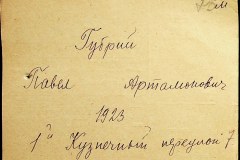 75м
Губрий
Павел Артамонович
1923
1й Кузнечный переулок 7